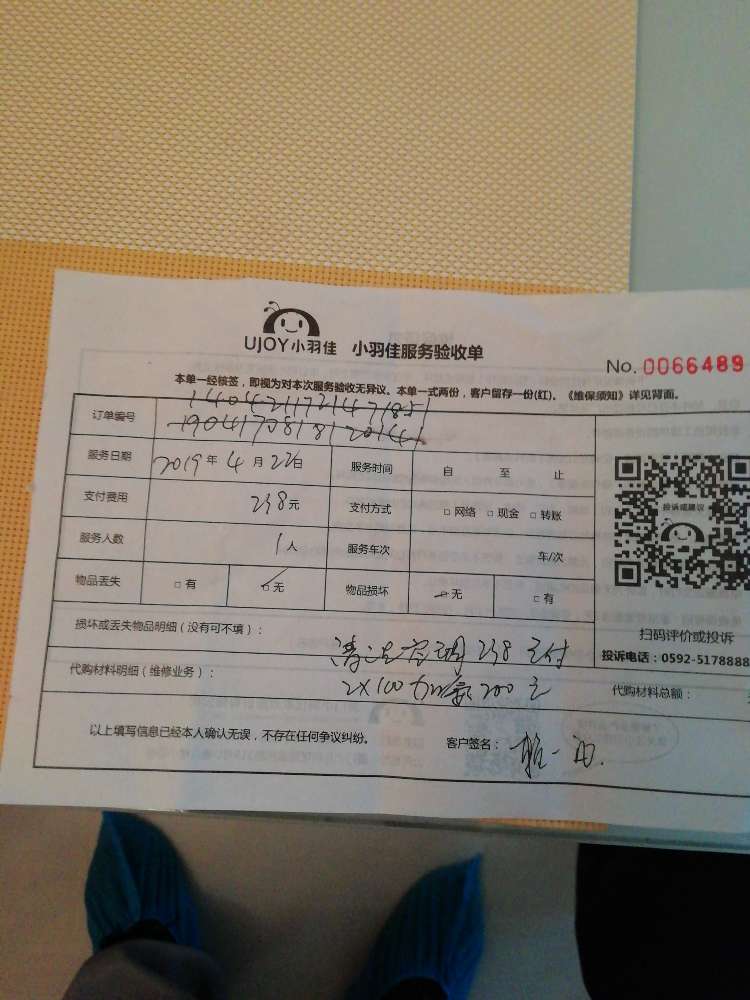 UJOY小羽佳 小羽佳服务验收单
No. 0066489
本单一经核签，即视为对本次服务验收无异议。本单一式两份，客户留存一份(红)。《维保须知》详见背面。
订单编号
服务日期 2019年4月22日 服务时间 自 至 止
支付费用 238元 支付方式 □网络 □现金 □转账
投诉或建议
服务人数 1人 服务车次 车/次
物品丢失 □有 □无 物品损坏 □无 □有
扫码评价或投诉
投诉电话：0592-5178888
损坏或丢失物品明细（没有可不填）：
238 已付
代购材料明细（维修业务）： 2X100 200元 代购材料总额：
以上填写信息已经本人确认无误，不存在任何争议纠纷。 客户签名：